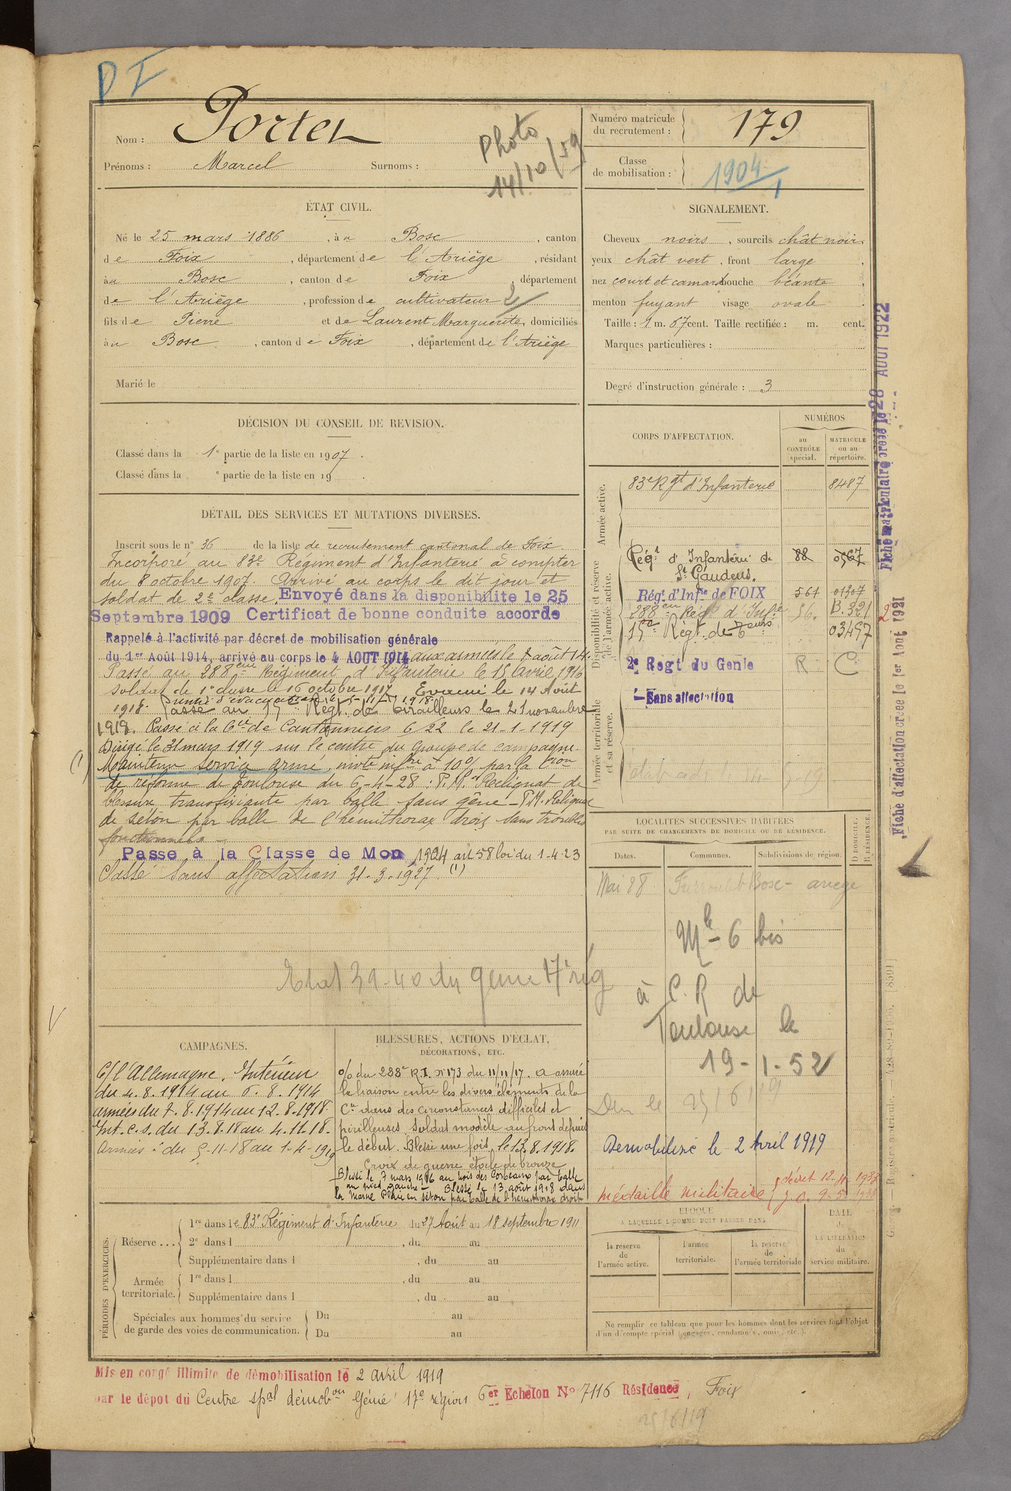 P I
Nom : Portet
Prénoms : Marcel Surnoms :
Photo
14/10/59
Numéro matricule
du recrutement : 179
Classe
de mobilisation : 1904
ÉTAT CIVIL.
Né le 25 mars 1886, à Bosc, canton
de Foix, département de l'Ariège, résidant
à Bosc, canton de Foix département
de l'Ariège, profession de cultivateur
fils de Pierre et de Laurent Marguerite, domiciliés
à Bosc, canton de Foix, département de l'Ariège
Marié le
SIGNALEMENT.
Cheveux noirs, sourcils chât noir
yeux chât vert, front large
nez court et camard bouche béante
menton fuyant visage ovale
Taille : 1 m. 67 cent. Taille rectifiée : m. cent.
Marques particulières :
Degré d'instruction générale : 3
DÉCISION DU CONSEIL DE REVISION.
Classé dans la 1e partie de la liste en 1907.
Classé dans la e partie de la liste en 19 .
DÉTAIL DES SERVICES ET MUTATIONS DIVERSES.
Inscrit sous le n° 36 de la liste de recrutement cantonal de Foix.
Incorporé au 83e Régiment d'Infanterie à compter
du 8 octobre 1907. Arrivé au corps le dit jour et
soldat de 2e classe. Envoyé dans la disponibilité le 25
Septembre 1909 Certificat de bonne conduite accordé
Rappelé à l'activité par décret de mobilisation générale
du 1er Août 1914, arrivé au corps le 4 AOUT 1914 aux armées le 7 août 14
Passé au 288eme Régiment d'Infanterie le 15 avril 1916
Soldat de 1e classe le 16 octobre 1917. Evacué le 14 Août
1918.
Passé au 15e Régt. de Tirailleurs le 21 novembre
1918. Passé à la Cie de Cantonniers 6/22 le 21-1-1919
Dirigé le 31 mars 1919 sur le centre du Groupe de campagne.
(1) Maintenu service armé, invte infre à 10% par la Con
de réforme de Toulouse du 6-4-28 : P.M. Reliquat de
blessure transfixiante par balle sans gêne - P.M. Reliquat
de séton par balle de l'hémithorax droit sans troubles
fonctionnels
Passé à la Classe de Mon 1904 art 58 loi du 1-4-23
Passé sans affectation 31-3-1927. (1)
Etat 39-40 du 9eme 17e rég
CORPS D'AFFECTATION.
NUMÉROS
au
CONTRÔLE
spécial.
MATRICULE
ou au
répertoire.
Armée active.
83e Rgt d'Infanterie 8487
Disponibilité et réserve
de l'armée active.
Régt d'Infanterie de
St Gaudens. 88 0567
Régt. d'Infie de FOIX 561 01307
288eme Régt d'Infie 56 B.321
15e Régt. de 03497
2e Regt du Génie R C
Armée territoriale
et sa réserve.
Sans affectation
Fiche matriculaire créée le 28 AOUT 1922
Fiche d'affectation créée le 1er Août 1921
LOCALITÉS SUCCESSIVES HABITÉES
PAR SUITE DE CHANGEMENTS DE DOMICILE OU DE RÉSIDENCE.
Dates. Communes. Subdivisions de région. D DOMICILE. R RÉSIDENCE.
Mai 28 Bosc - ariège
Mle - 6 bis
à C.R de
Toulouse le
19-1-52
25/6/19
Démobilisé le 2 Avril 1919
médaille militaire
CAMPAGNES.
C/ l'Allemagne. Intérieur
du 4.8.1914 au 6.8.1914
armées du 7.8.1914 au 12.8.1918
Int. c. s. du 13.8.18 au 4.11.18
armées du 5-11-18 au 1-4-1919
BLESSURES, ACTIONS D'ÉCLAT,
DÉCORATIONS, ETC.
o/o du 288e R.I. n° 173 du 11/11/17. a assuré
la liaison entre les divers éléments de la
Cie dans des circonstances difficiles et
périlleuses. Soldat modèle au front depuis
le début. Blessé une fois, le 13.8.1918.
Croix de guerre étoile de bronze
Blessé le 7 mars 1916 au bois des Corbeaux par balle
au pied gauche - Blessé le 13 août 1918 dans
la Marne Plaie en séton par balle de l'hémithorax droit
PÉRIODES D'EXERCICES.
Réserve... 1re dans le 83e Régiment d'Infanterie du 27 août au 18 septembre 1911
2e dans l , du au
Supplémentaire dans l , du au
Armée
territoriale. 1re dans l , du au
Supplémentaire dans l , du au
Spéciales aux hommes du service
de garde des voies de communication. Du au
Du au
ÉPOQUE
À LAQUELLE L'HOMME DOIT PASSER DANS
la réserve
de
l'armée active.
l'armée
territoriale.
la réserve
de
l'armée territoriale
DATE
de
LA LIBÉRATION
du
service militaire.
Ne remplir ce tableau que pour les hommes dont les services font l'objet
d'un décompte spécial (engagés, condamnés, omis, etc.).
Mis en congé illimité de démobilisation le 2 avril 1919
par le dépôt du Centre spal démobon Génie 17e région 6er Echelon No 7116 Résidence, Foix
25/6/19